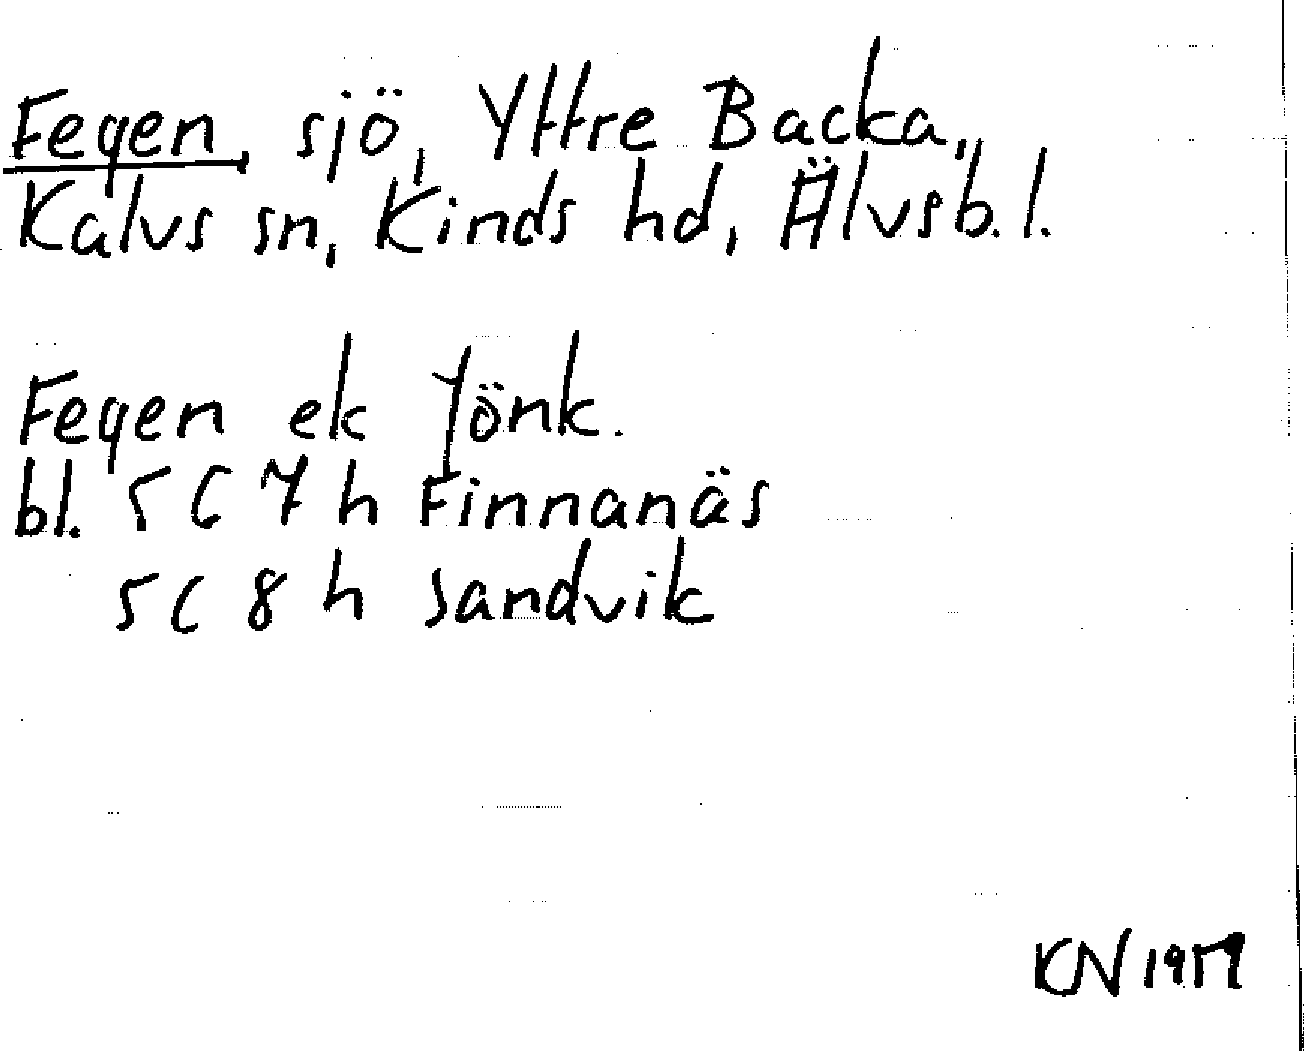 Fegen, sjö, Yttre Backa,
Kalvs sn, Kinds hd, Älvsb. l.
Fegen ek Jönk.
bl. 5 C 7 h Finnanäs
5 C 8 h Sandvik
KN